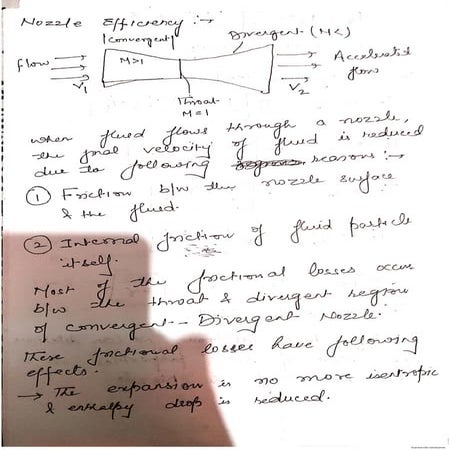 Nozzle Efficiency :→
Convergent
Divergent (M<)
Flow
M>1
Accelerated
flow
V1
V2
Throat
M=1
when fluid flows through a nozzle,
the final velocity of fluid is reduced
due to following reasons :→
① Friction b/w the nozzle surface
& the fluid.
② Internal friction of fluid particle
itself.
Most of the frictional losses occur
b/w the throat & divergent region
of convergent - Divergent Nozzle.
These frictional losses have following
effects.
→ The expansion is no more isentropic
& enthalpy drop is reduced.